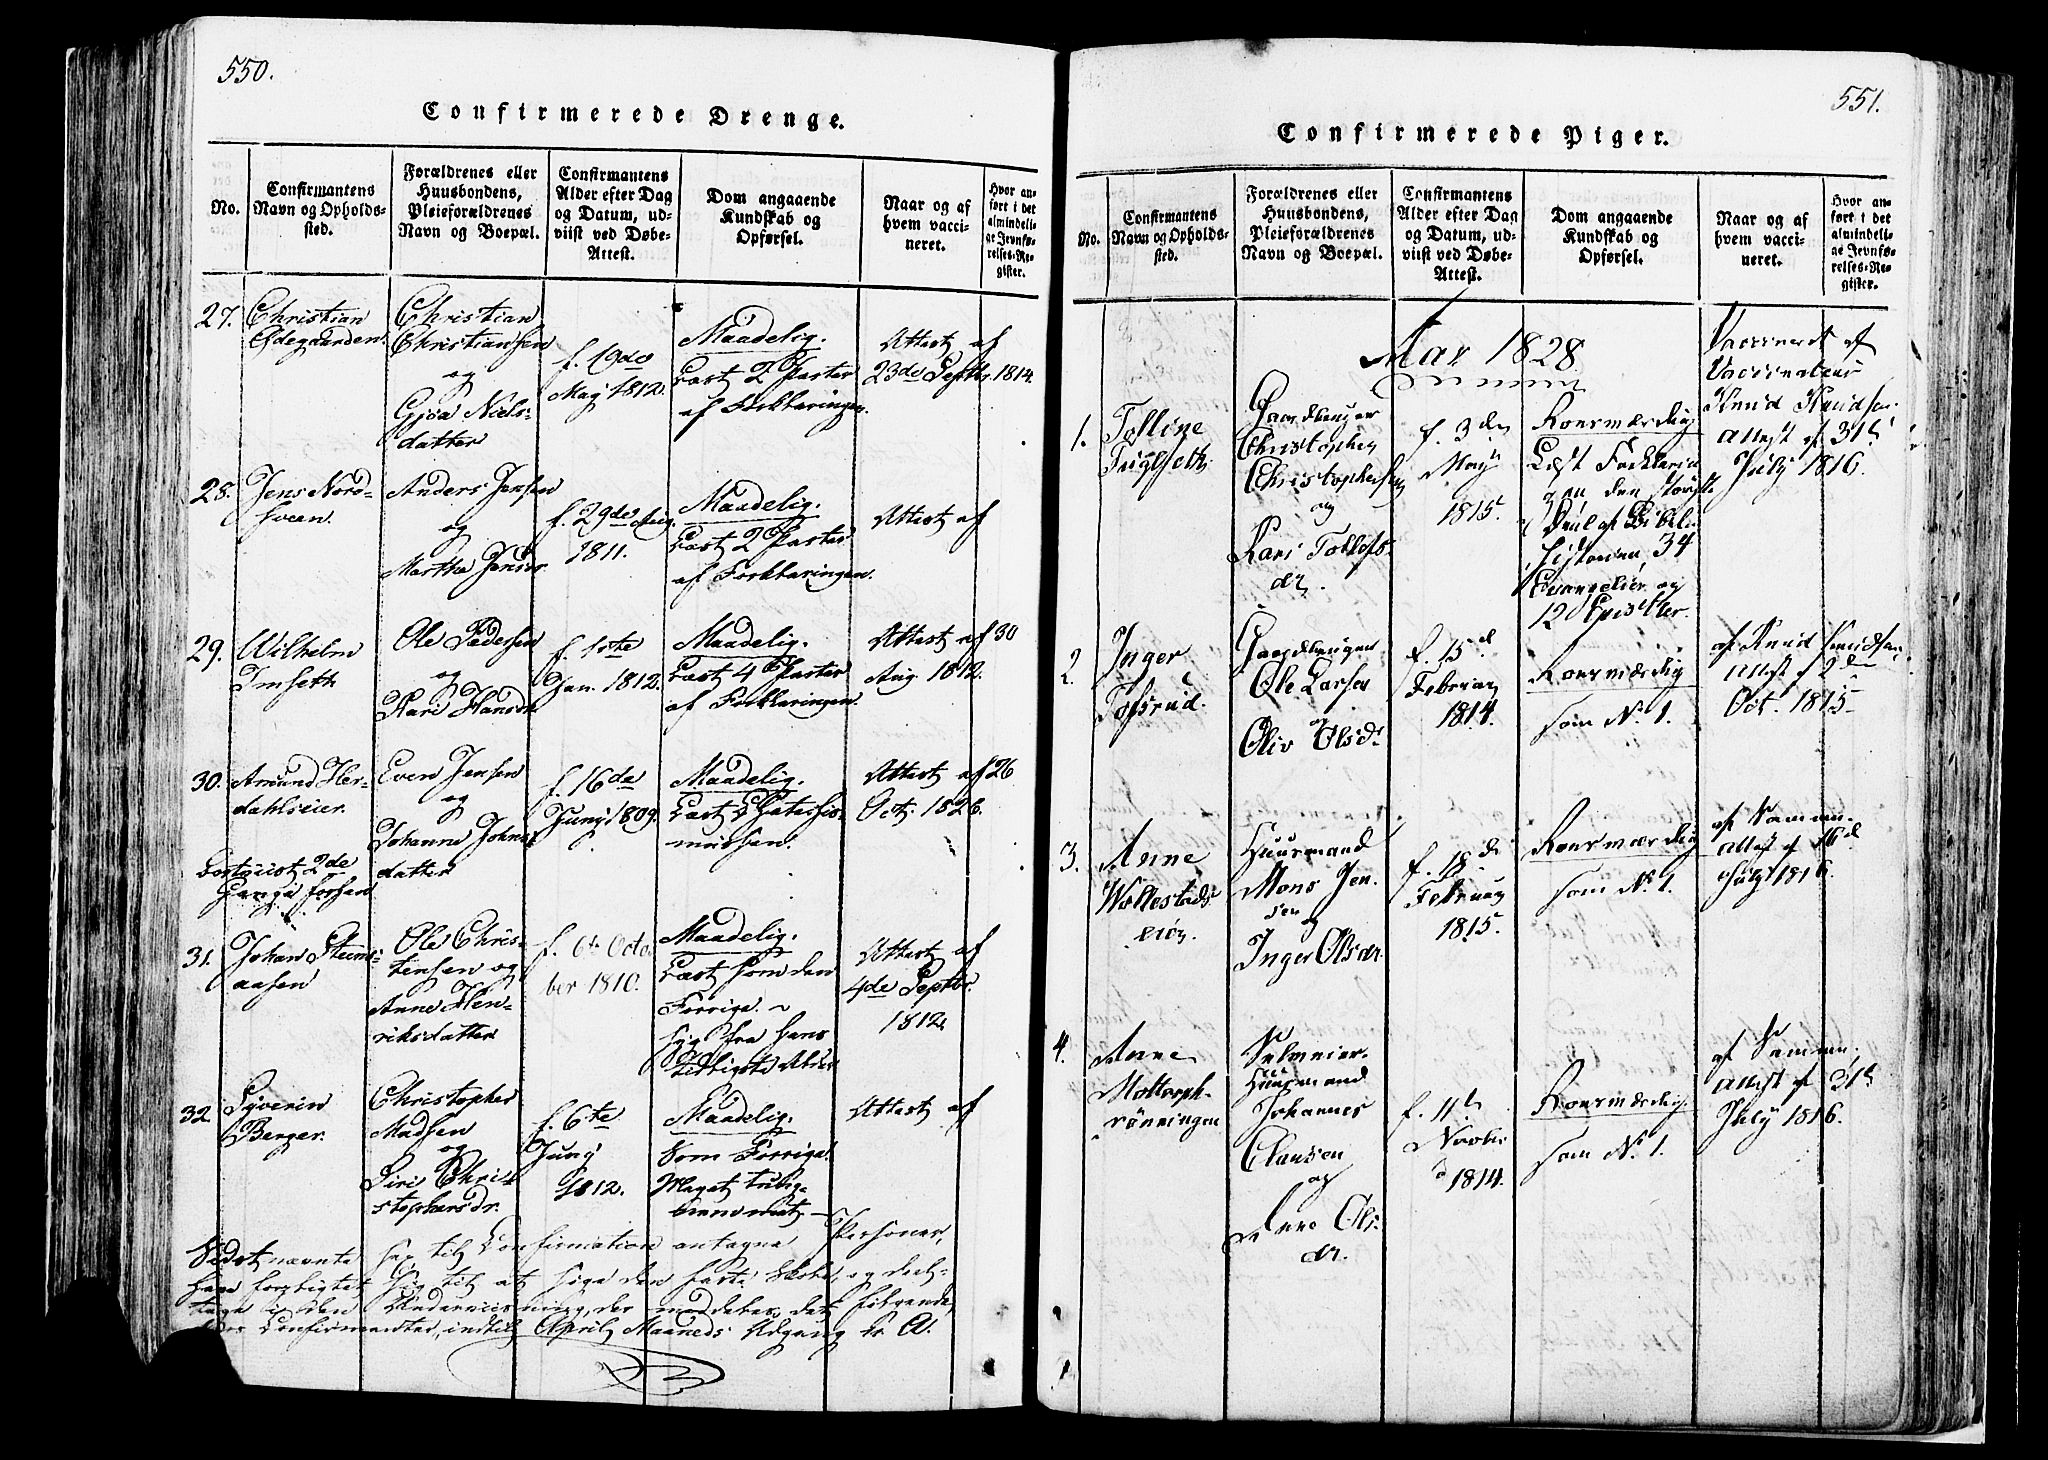 550.
Confirmerede Drenge.
No.
Confirmantens
Navn og Opholds-
sted.
Forældrenes eller
Huusbondens,
Pleieforældrenes
Navn og Boepæl.
Confirmantens
Alder efter Dag
og Datum, ud-
viist ved Døbe-
Attest.
Dom angaaende
Kundskab og
Opførsel.
Naar og af
hvem vacci-
neret.
Hvor an-
ført i det
almindeli-
ge Jevnfø-
relses-Re-
gister.
27.
Christian
Ødegaarden.
Christian
Christiansen
og
Gjøa Niels-
datter
f. 19de
May 1812.
Maadelig.
Læst 2 Parter
af Forklaringen.
Attest af
23de Septbr. 1814.
28.
Jens Nord-
sveen.
Anders Jensen
og
Marthe Jensdr.
f. 29de Aug.
1811.
Maadelig.
Læst 2 Parter
af Forklaringen.
Attest af
29.
Wilhelm
Imseth
Ole Pedersen
og
Kari Hansdr.
f. 1ste
Jan. 1812.
Maadelig.
Læst 4 Parter
af Forklaringen.
Attest af 30
Aug. 1812.
30.
Amund Her-
dahlseier.
Even Jensen
og
Johanne Johns-
datter
f. 16de
Juny 1809.
Maadelig.
Læst Chatechis-
mussen.
Attest af 26
Oct. 1826.
31.
Johan Steens-
aasen
Ole Chris-
tensen og
Anne Hen-
riksdatter
f. 6te Octo-
ber 1810.
Maadelig.
Læst som den
Forrige. ~
Syg fra hans
tidligste Alder
Attest af
4de Septbr.
1812.
32.
Syverin
Berger.
Christopher
Madsen
og
Siri Chri-
stophersdr.
f. 6te
Juny
1812.
Maadelig.
Som Forrige.
Meget tung-
Attest af
Sidst nævnte sex til Confirmation antagne Personer,
have forpligtet sig til at søge den faste Skole, og deel-
tage i den Underviisning, der meddeles det følgende
Confirmanter, indtil April Maaneds Udgang
551.
Confirmerede Piger.
No.
Confirmantens
Navn og Opholds-
sted.
Forældrenes eller
Huusbondens,
Pleieforældrenes
Navn og Boepæl.
Confirmantens
Alder efter Dag
og Datum, ud-
viist ved Døbe-
Attest.
Dom angaaende
Kundskab og
Opførsel.
Naar og af
hvem vacci-
neret.
Hvor an-
ført i det
almindeli-
ge Jevnfø-
relses-Re-
gister.
Aar 1828.
1.
Tolline
Fuglseth.
Gaardbruger
Christopher
Christophersen
og
Kari Tollefs-
dr.
f. 3de
May
1815.
Roesværdig
Læst Forklarin
gen, den største
Deel af Bibel
historien, 34
Evangelier og
12 Epistler.
Vaccineret af
Vaccinateur
Knud Knudsen.
Attest af 31te
July 1816.
2.
Inger
Tofsrud.
Gaardbruger
Ole Larsen
og
Oliv Olsdr.
f. 15d
Februar
1814.
Roesværdig
som No 1.
af Knud Knudsen.
Attest af 2den
Oct. 1815
3.
Anne
Wollestads
eier
Huusmand
Mons Jen-
sen
og
Inger Olsdr.
f. 18de
Februar
1815.
Roesværdig
som No 1.
af Samme.
Attest af 16d
July 1816.
4.
Anne
Moltorph-
rønningen
Huusmand
Johannes
Clausen
og
Anne Ols-
dr.
f. 11te
Novbr
1814.
Roesværdig.
som No 1.
af Samme,
Attest af 21de
July 1816.